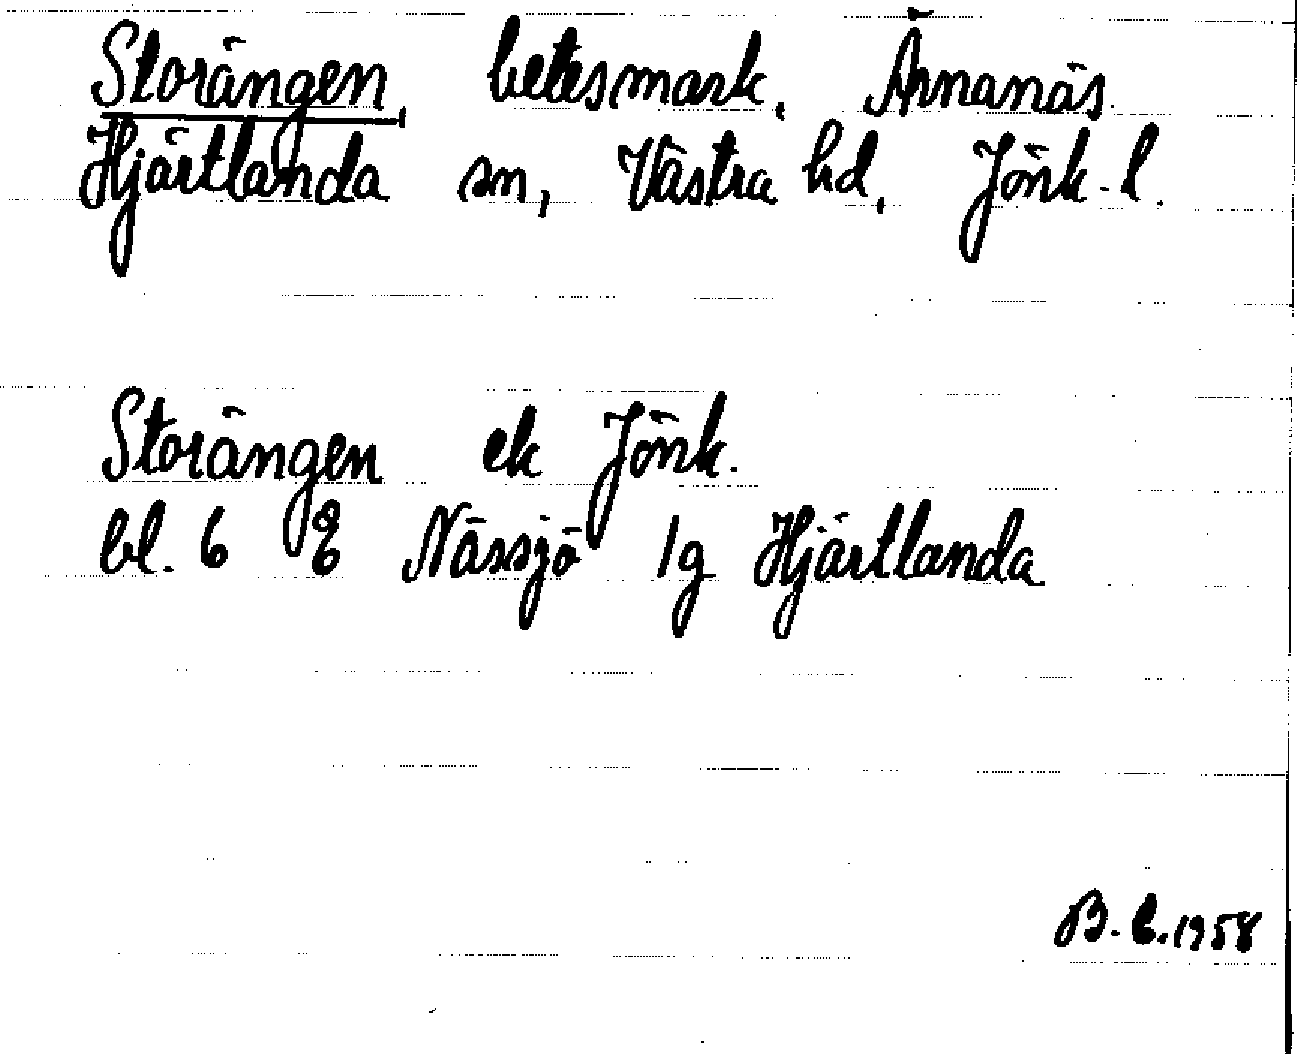 Storängen, betesmark, Ärnanäs
Hjärtlanda sn, Västra hd, Jönk. l.
Storängen ek Jönk.
bl. 6 Nässjö 1g Hjärtlanda
1958